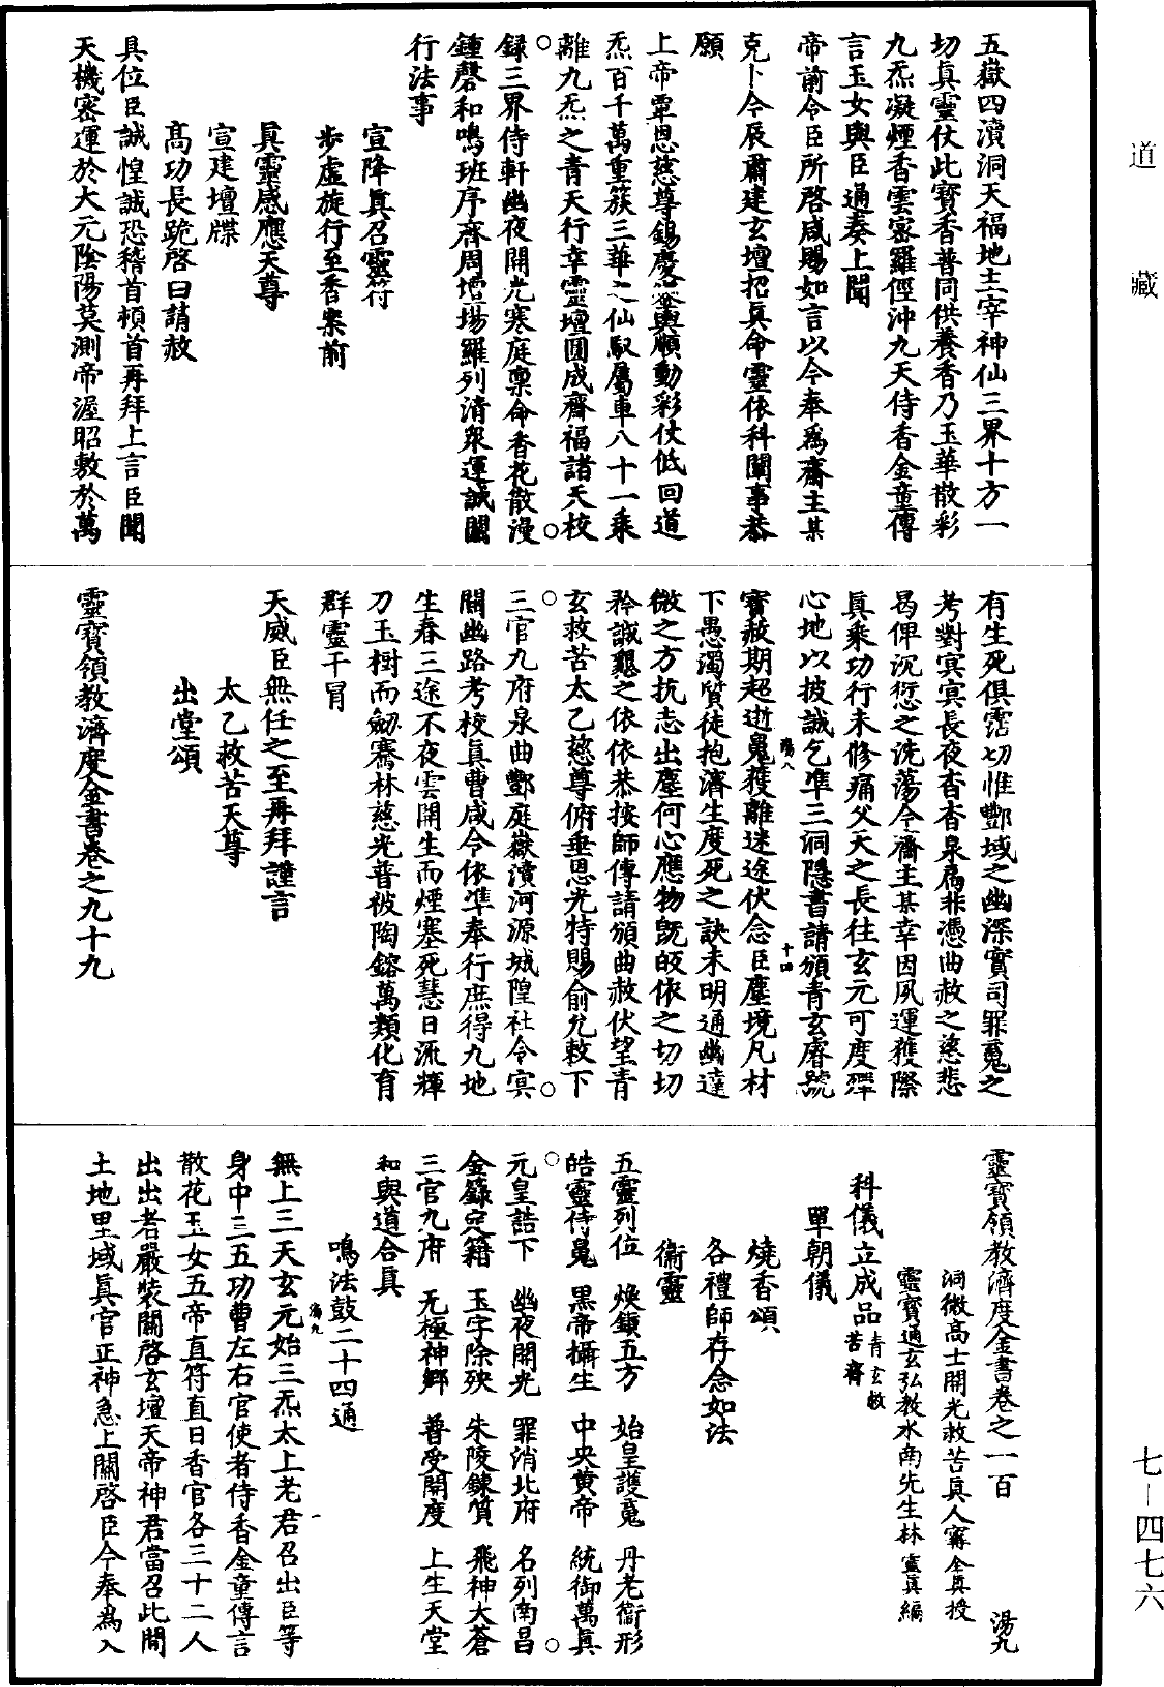 道藏
五嶽四瀆洞天福地主宰神仙三界十方一
切眞靈仗此寶香普同供養香乃玉華散彩
九炁凝煙香雲密羅徑沖九天侍香金童傳
言玉女與臣通奏上聞
帝前令臣所啓咸賜如言以今奉爲齋主某
克卜今辰肅建玄壇招眞命靈依科闡事恭
願
上帝覃恩慈尊錫慶鑾輿順動彩仗低回道
炁百千萬重蔟三華之仙馭屬車八十一乘
離九炁之青天行幸靈壇圓成齋福諸天校
録三界侍軒幽夜開光寒庭稟命香花散漫
鍾磬和鳴班序齊周壇場羅列清衆運誠關
行法事
宣降眞召靈符
步虛旋行至香案前
眞靈感應天尊
宣建壇牒
高功長跪啓曰請赦
具位臣誠惶誠恐稽首頓首再拜上言臣聞
天機密運於大元陰陽莫測帝渥昭敷於萬
有生死俱霑切惟酆域之幽深實司罪冤之
考對冥冥長夜杳杳泉扃非憑曲赦之慈悲
曷俾沉愆之洗蕩今齋主某幸因夙運獲際
眞乘功行未修痛父天之長往玄元可度殫
心地以披誠乞準三洞隱書請頒青玄睿號
寶赦期超逝魂獲離迷途伏念臣塵境凡材
下愚濁質徒抱濟生度死之訣未明通幽達
微之方抗志出塵何心應物旣皈依之切切
矜誠懇之依依恭按師傳請頒曲赦伏望青
玄救苦太乙慈尊俯垂恩光特賜俞允敕下
三官九府泉曲酆庭嶽瀆河源城隍社令冥
關幽路考校眞曹咸令依準奉行庶得九地
生春三途不夜雲開生而煙塞死慧日流輝
刀玉樹而劒騫林慈光普被陶鎔萬類化育
群靈干冒
天威臣無任之至再拜謹言
太乙救苦天尊
出堂頌
靈寶領教濟度金書卷之九十九
湯八
十四
靈寶領教濟度金書卷之一百 湯九
洞微高士開光救苦眞人甯全眞授
靈寶通玄弘教水南先生林靈眞編
科儀立成品 青玄救苦齋
單朝儀
燒香頌
各禮師存念如法
衞靈
五靈列位 煥鎮五方 始皇護魂 丹老衞形
皓靈侍魄 黑帝攝生 中央黄帝 統御萬眞
元皇誥下 幽夜開光 罪消北府 名列南昌
金籙定籍 玉字除殃 朱陵鍊質 飛神大蒼
三官九府 无極神鄉 普受開度 上生天堂
和與道合眞
鳴法鼓二十四通
湯九
一
無上三天玄元始三炁太上老君召出臣等
身中三五功曹左右官使者侍香金童傳言
散花玉女五帝直符直日香官各三十二人
出出者嚴裝關啓玄壇天帝神君當召此間
土地里域眞官正神急上關啓臣今奉為入
七－四七六